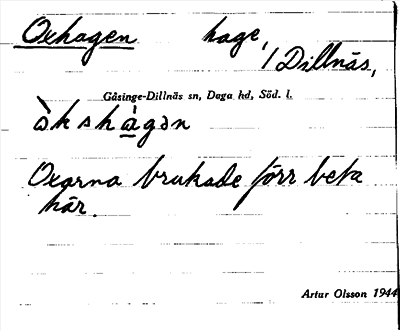 Oxhagen hage,
/ Dillnäs,
Gåsinge-Dillnäs sn, Daga hd, Söd. l.
òkshàgən
Oxarna brukade förr beta
här.
Artur Olsson 1944